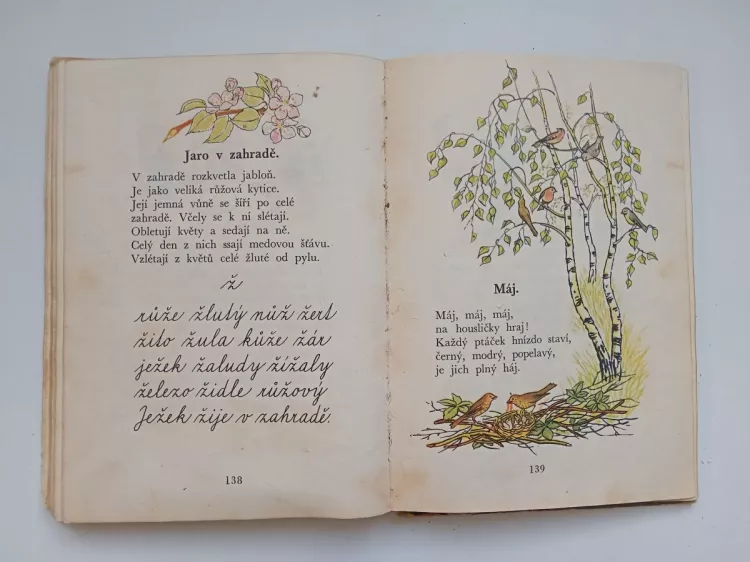 Jaro v zahradě.
V zahradě rozkvetla jabloň.
Je jako veliká růžová kytice.
Její jemná vůně se šíří po celé
zahradě. Včely se k ní slétají.
Obletují květy a sedají na ně.
Celý den z nich ssají medovou šťávu.
Vzlétají z květů celé žluté od pylu.
ž
růže žlutý nůž žert
žito žula kůže žár
ježek žaludy žížaly
železo židle růžový
Ježek žije v zahradě.
138
Máj.
Máj, máj, máj,
na housličky hraj!
Každý ptáček hnízdo staví,
černý, modrý, popelavý,
je jich plný háj.
139